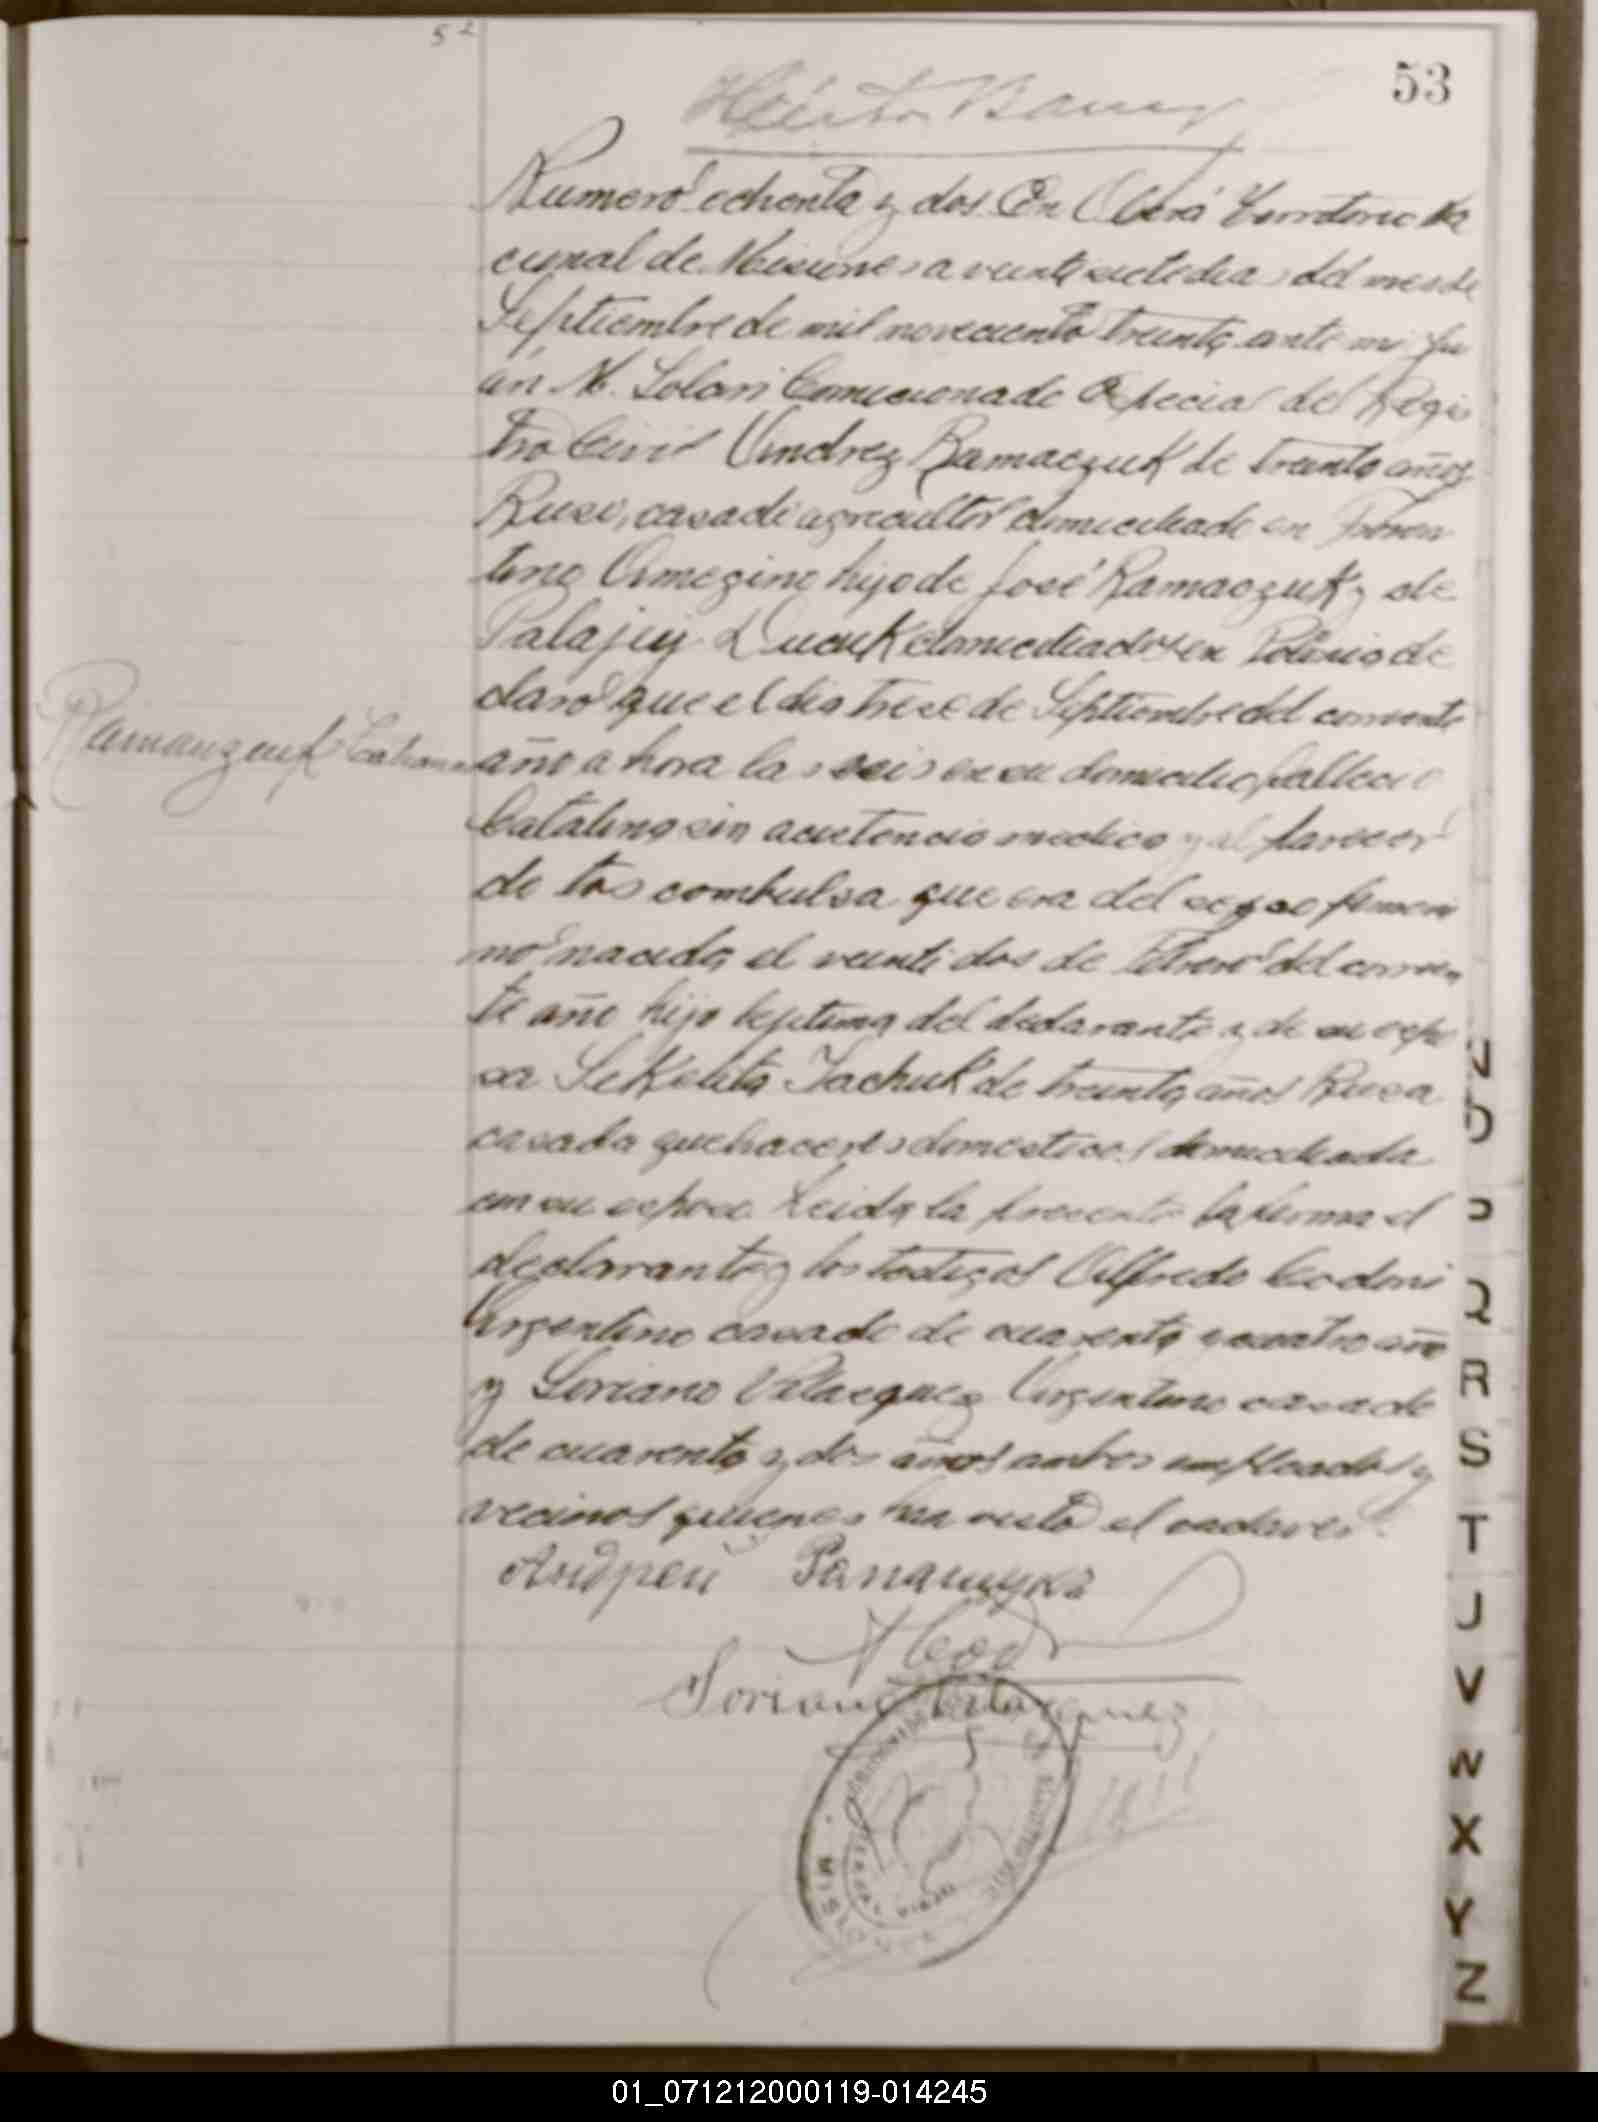 52
53
Numero ochenta y dos En Oberá Territorio Na
cional de Misiones a veintisiete dias del mes de
Septiembre de mil novecientos treinta ante mi Ju
an M. Solari Comicionado Especial del Regis
tro Civil Andrez Ramaczuk de treinta años
Ruso, casado agricultor domiciliado en
hijo de José Ramaczuk y de
Palajey domiciliados en Polonia de
claró que el dia trese de Septiembre del corriente
Ramanzuk Catalina
año a hora las seis en su domicilio fallecio
Catalina sin acistencia medica y al parecer
de tos combulsa que era del segso femeni
no nacida el veintidos de Febrero del corrien
te año hija septima del declarante y de su espo
sa Tachuk de treinta años Rusa
casada quehaceres domesticos domiciliada
con su esposo. Leida la presente la firma el
declarante y los testigos Alfredo Codoni
Argentino casado de cuarenta y cuatro año
y Soriano Velasquez Argentino casado
de cuarenta y dos años ambos empleados y
vecinos quienes han visto el cadaver.
Андреи
Soriano Velasquez
MISIONES
N
O
P
Q
R
S
T
J
V
W
X
Y
Z
01_071212000119-014245